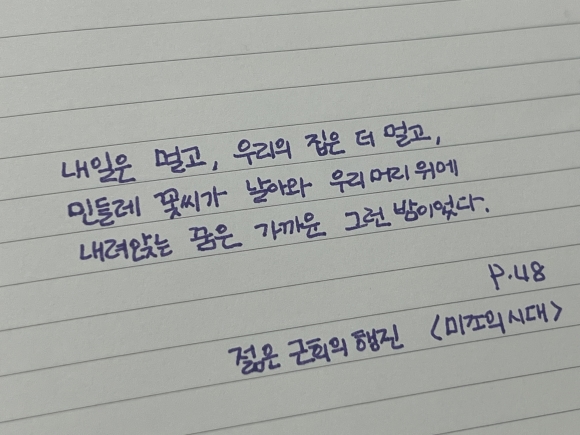 내일은 멀고, 우리의 집은 더 멀고,
민들레 꽃씨가 날아와 우리 머리 위에
내려앉는 꿈은 가까운 그런 밤이었다.
P.48
젊은 근희의 행진 <미조의 시대>